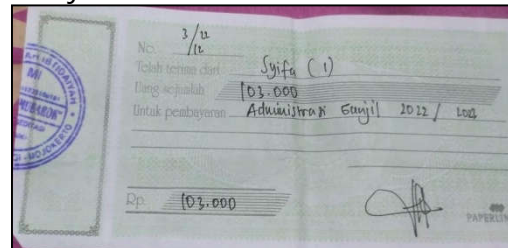 No. 3/22
12
Telah terima dari Syifa (1)
Uang sejumlah 103.000
Untuk pembayaran Administrasi Ganjil 2022/
Rp. 103.000
MI
MOJOKERTO
PAPERLINE